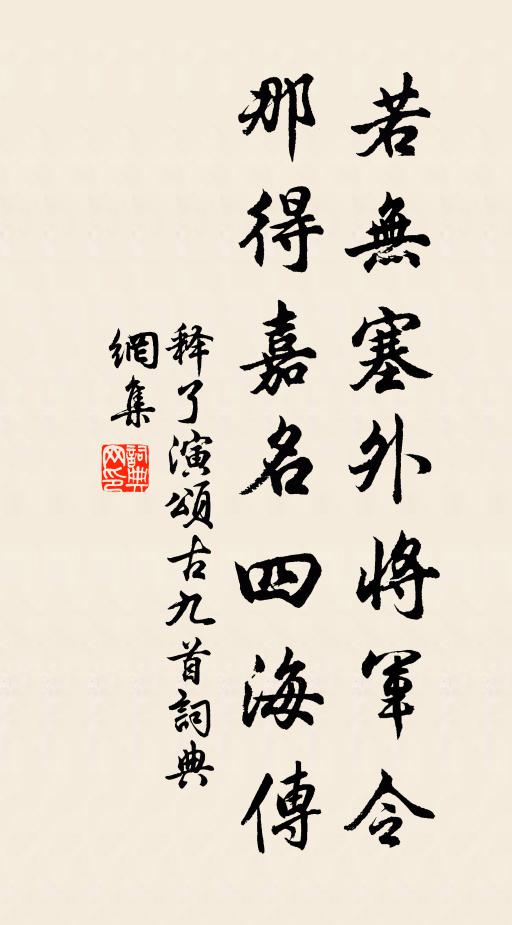 若無塞外將軍令
那得嘉名四海傳
释了演頌古九首詞典
網集
詞典網印